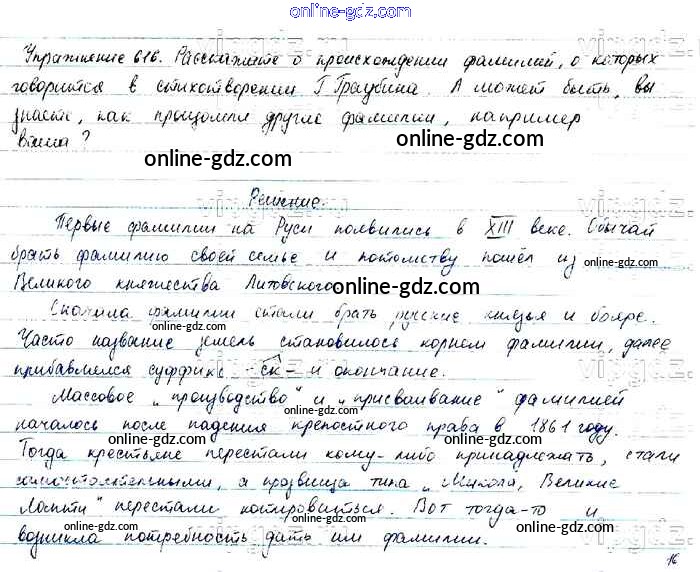 online-gdz.com
Упражнение 616. Расскажите о происхождении фамилий, о которых
говорится в стихотворении Г. Граубина. А может быть, вы
знаете, как произошли другие фамилии, например
ваша?
online-gdz.com
online-gdz.com
Решение.
Первые фамилии на Руси появились в XIII веке. Обычай
брать фамилию своей семье и потомству пошёл из
Великого княжества Литовского.
online-gdz.com
online-gdz.com
Сначала фамилии стали брать русские князья и бояре.
online-gdz.com
Часто название земель становилось корнем фамилии, далее
прибавлялся суффикс -ск- и окончание.
online-gdz.com
Массовое „производство" и „присваивание" фамилией
online-gdz.com
началось после падения крепостного права в 1861 году.
online-gdz.com
Тогда крестьяне перестали кому-либо принадлежать, стали
online-gdz.com
самостоятельными, а прозвища типа „Микола, Великие
online-gdz.com
Лапти" перестали котироваться. Вот тогда-то и
online-gdz.com
возникла потребность дать им фамилии.
online-gdz.com
16